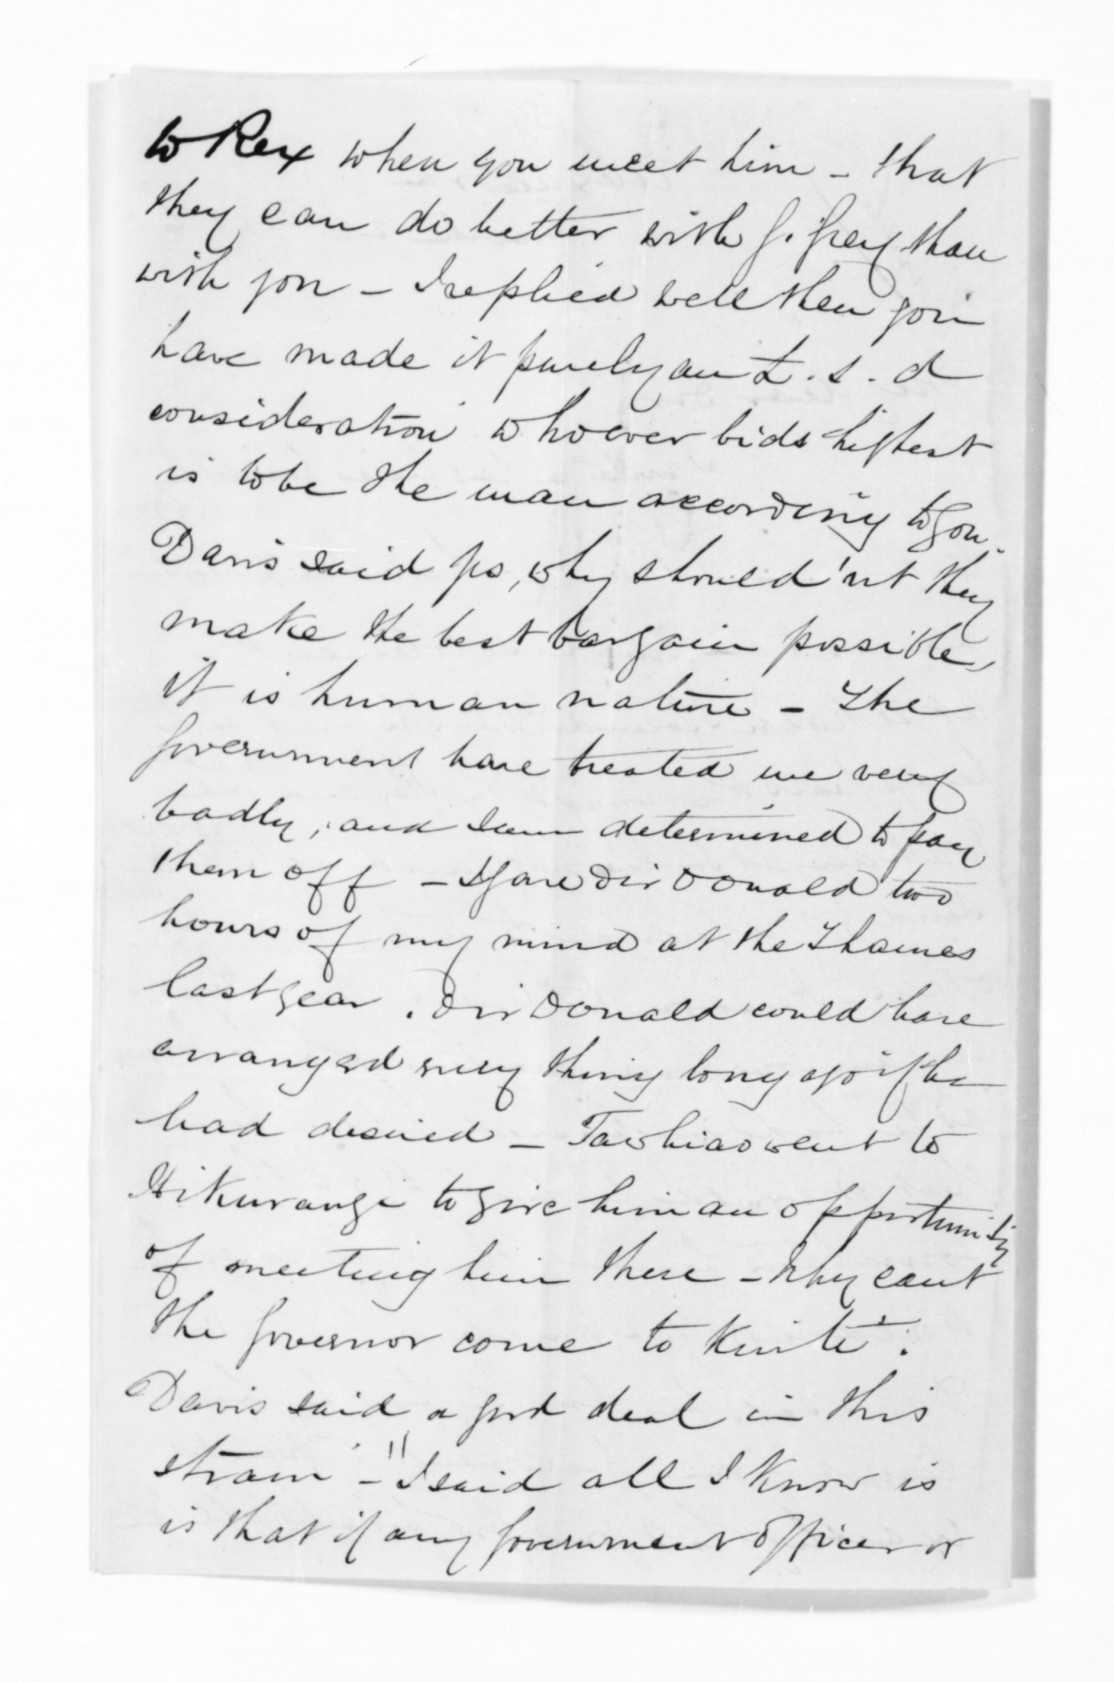 to Rex when you meet him - that
they can do better with G. Grey than
with you - I replied well then you
have made it purely an £. s. d
consideration whoever bids highest
is to be the man according to you.
Davis said yes, why should'nt they
make the best bargain possible,
it is human nature - The
Government have treated me very
badly, and I am determined to pay
them off - I gave Sir Donald two
hours of my mind at the Thames
last year. Sir Donald could have
arranged every thing long ago if he
had desired - Tawhiao went to
Hikurangi to give him an opportunity
of meeting him there - Why cant
the Governor come to Kuiti.
Davis said a good deal in this
strain - " I said all I know is
is that if any Government officer or